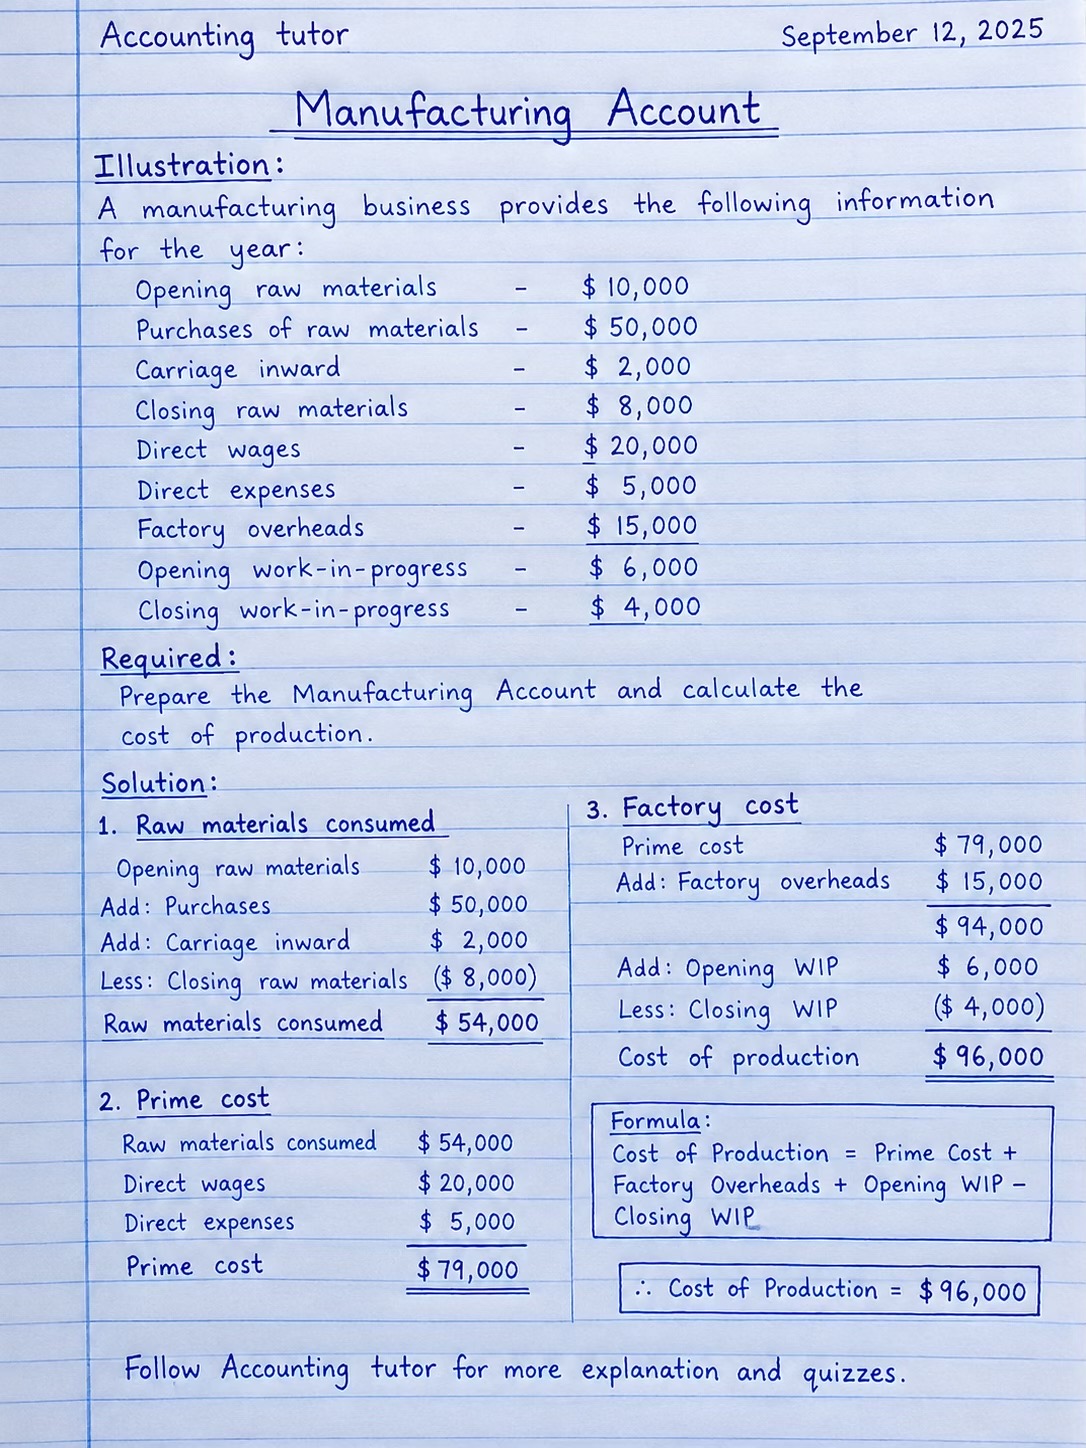 Accounting tutor
September 12, 2025
Manufacturing Account
Illustration:
A manufacturing business provides the following information
for the year:
Opening raw materials - $ 10,000
Purchases of raw materials - $ 50,000
Carriage inward - $ 2,000
Closing raw materials - $ 8,000
Direct wages - $ 20,000
Direct expenses - $ 5,000
Factory overheads - $ 15,000
Opening work-in-progress - $ 6,000
Closing work-in-progress - $ 4,000
Required:
Prepare the Manufacturing Account and calculate the
cost of production.
Solution:
1. Raw materials consumed
Opening raw materials $ 10,000
Add: Purchases $ 50,000
Add: Carriage inward $ 2,000
Less: Closing raw materials ($ 8,000)
Raw materials consumed $ 54,000
2. Prime cost
Raw materials consumed $ 54,000
Direct wages $ 20,000
Direct expenses $ 5,000
Prime cost $ 79,000
3. Factory cost
Prime cost $ 79,000
Add: Factory overheads $ 15,000
$ 94,000
Add: Opening WIP $ 6,000
Less: Closing WIP ($ 4,000)
Cost of production $ 96,000
Formula:
Cost of Production = Prime Cost +
Factory Overheads + Opening WIP -
Closing WIP
∴ Cost of Production = $ 96,000
Follow Accounting tutor for more explanation and quizzes.